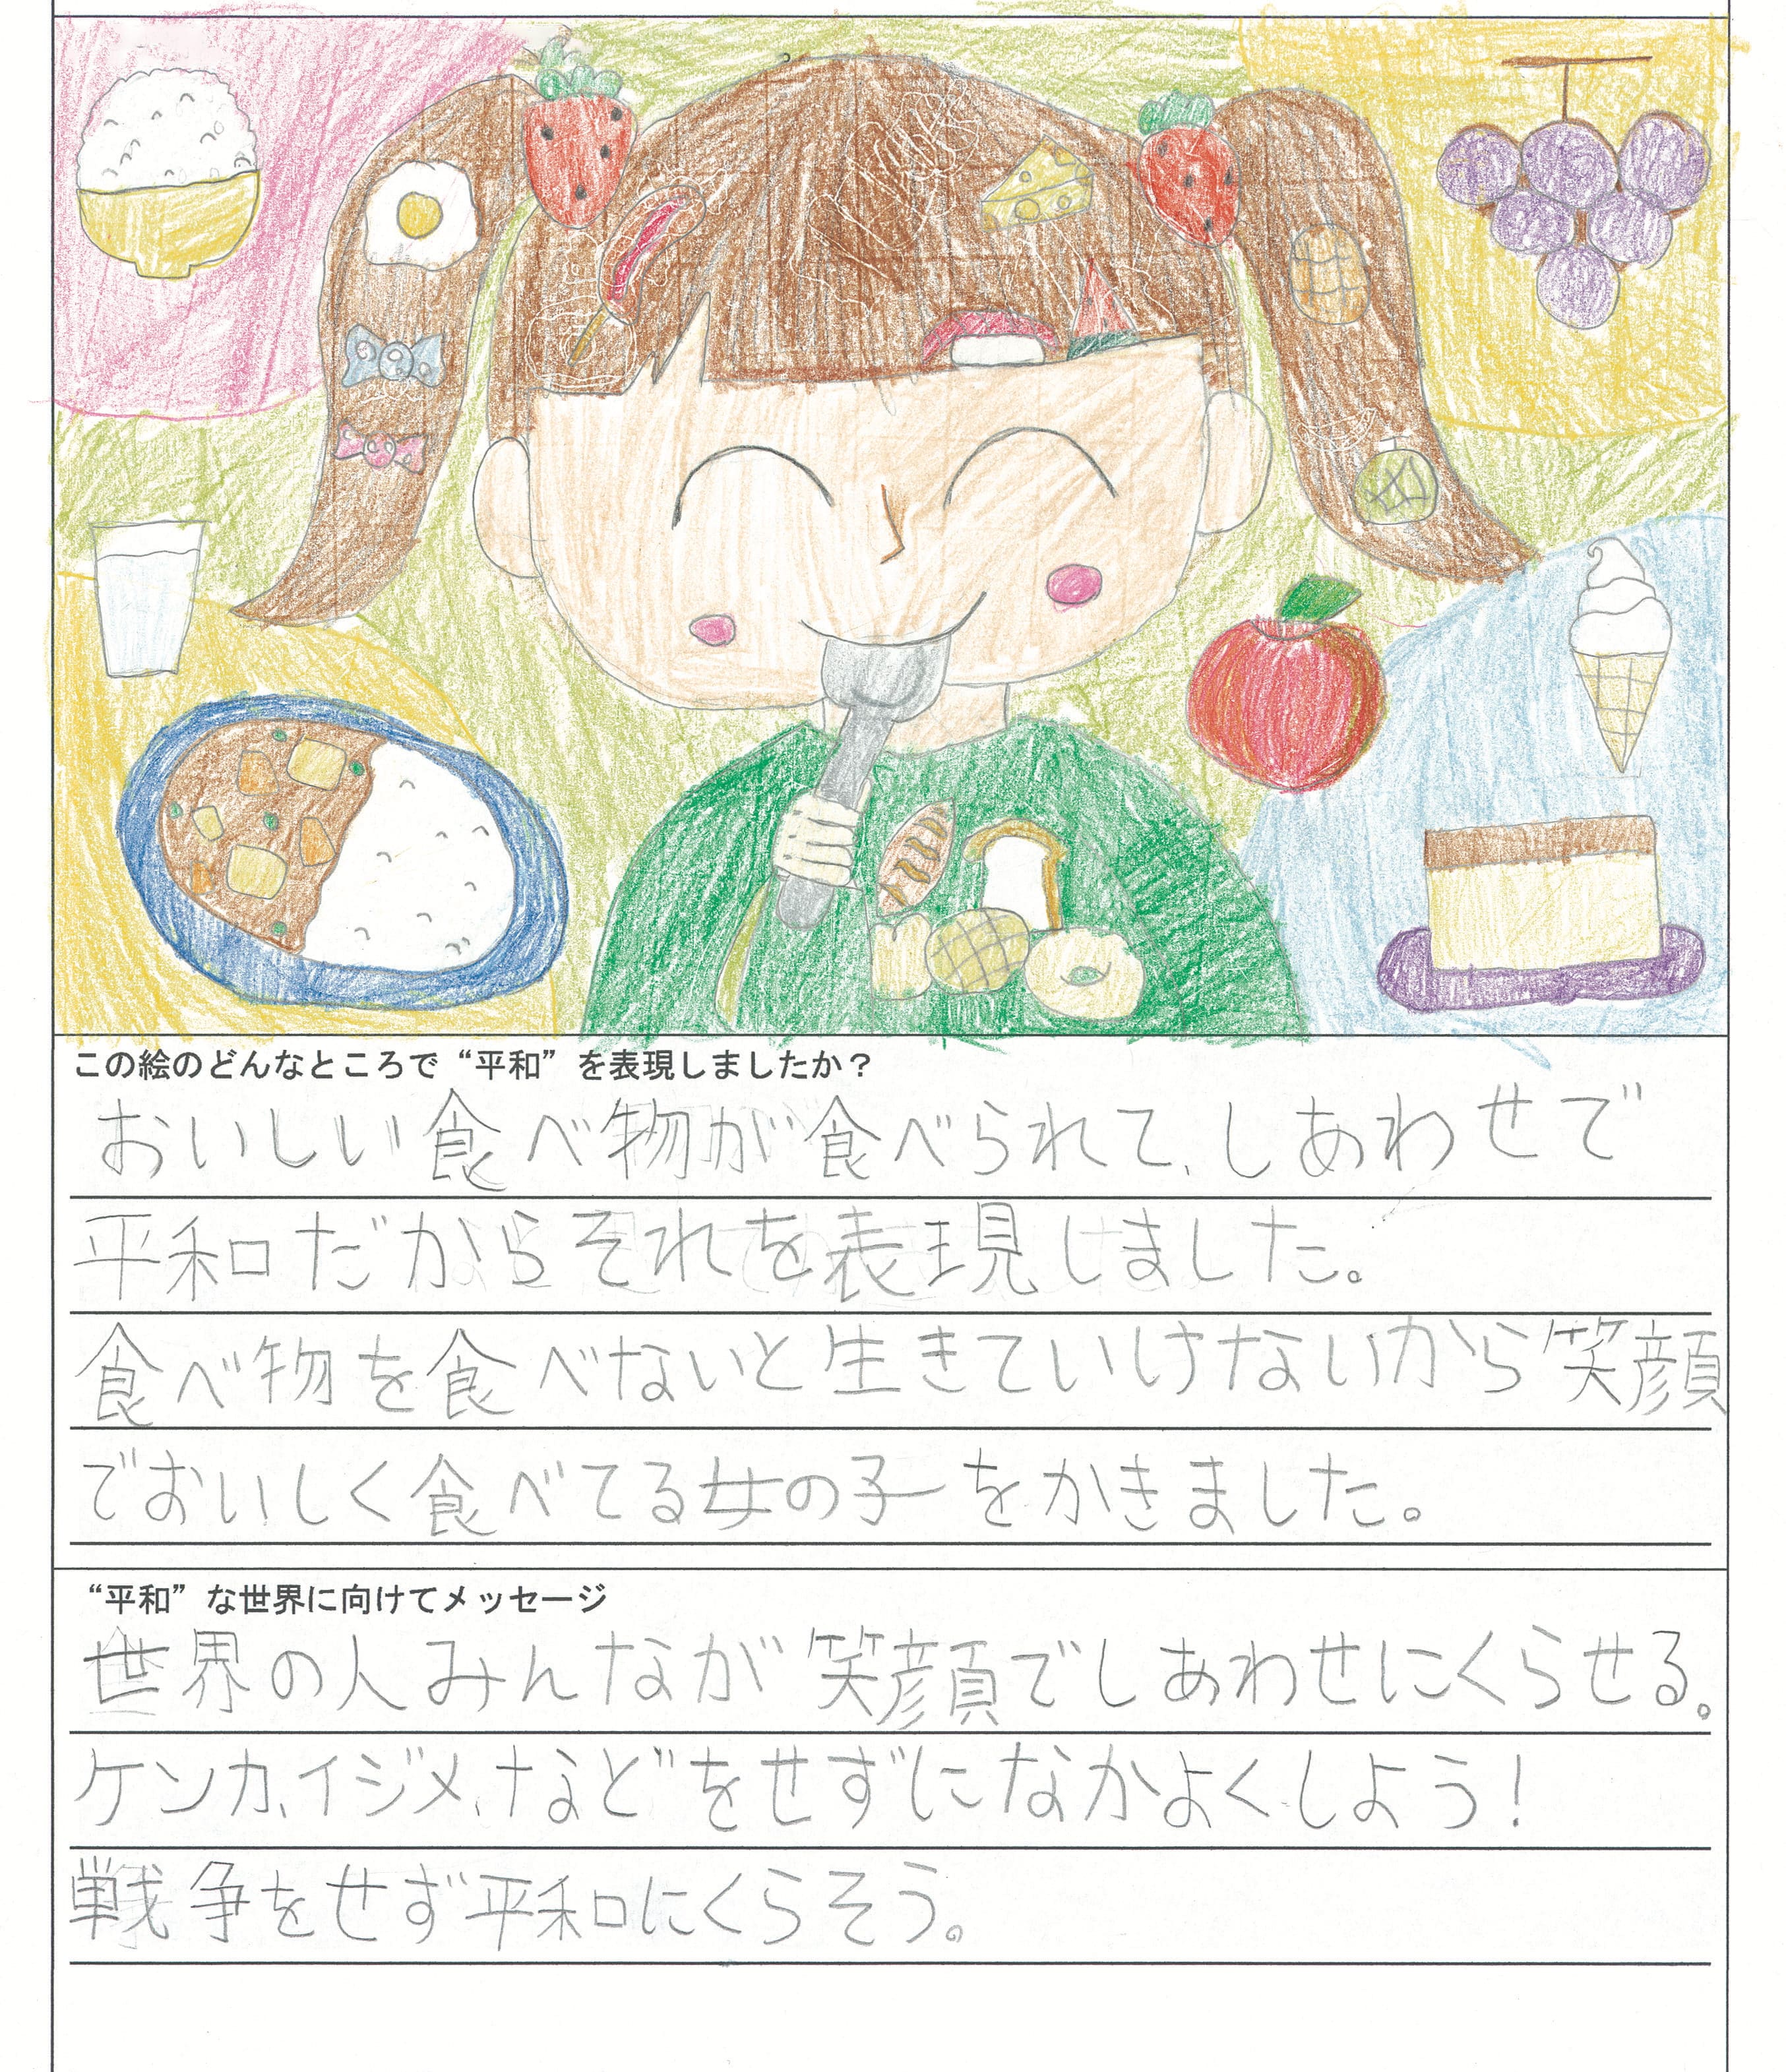 この絵のどんなところで“平和”を表現しましたか？
おいしい食べ物が食べられて、しあわせで
平和だからそれを表現しました。
食べ物を食べないと生きていけないから笑顔
でおいしく食べてる女の子をかきました。
“平和”な世界に向けてメッセージ
世界の人みんなが笑顔でしあわせにくらせる。
ケンカ、イジメ、などをせずになかよくしよう！
戦争をせず平和にくらそう。